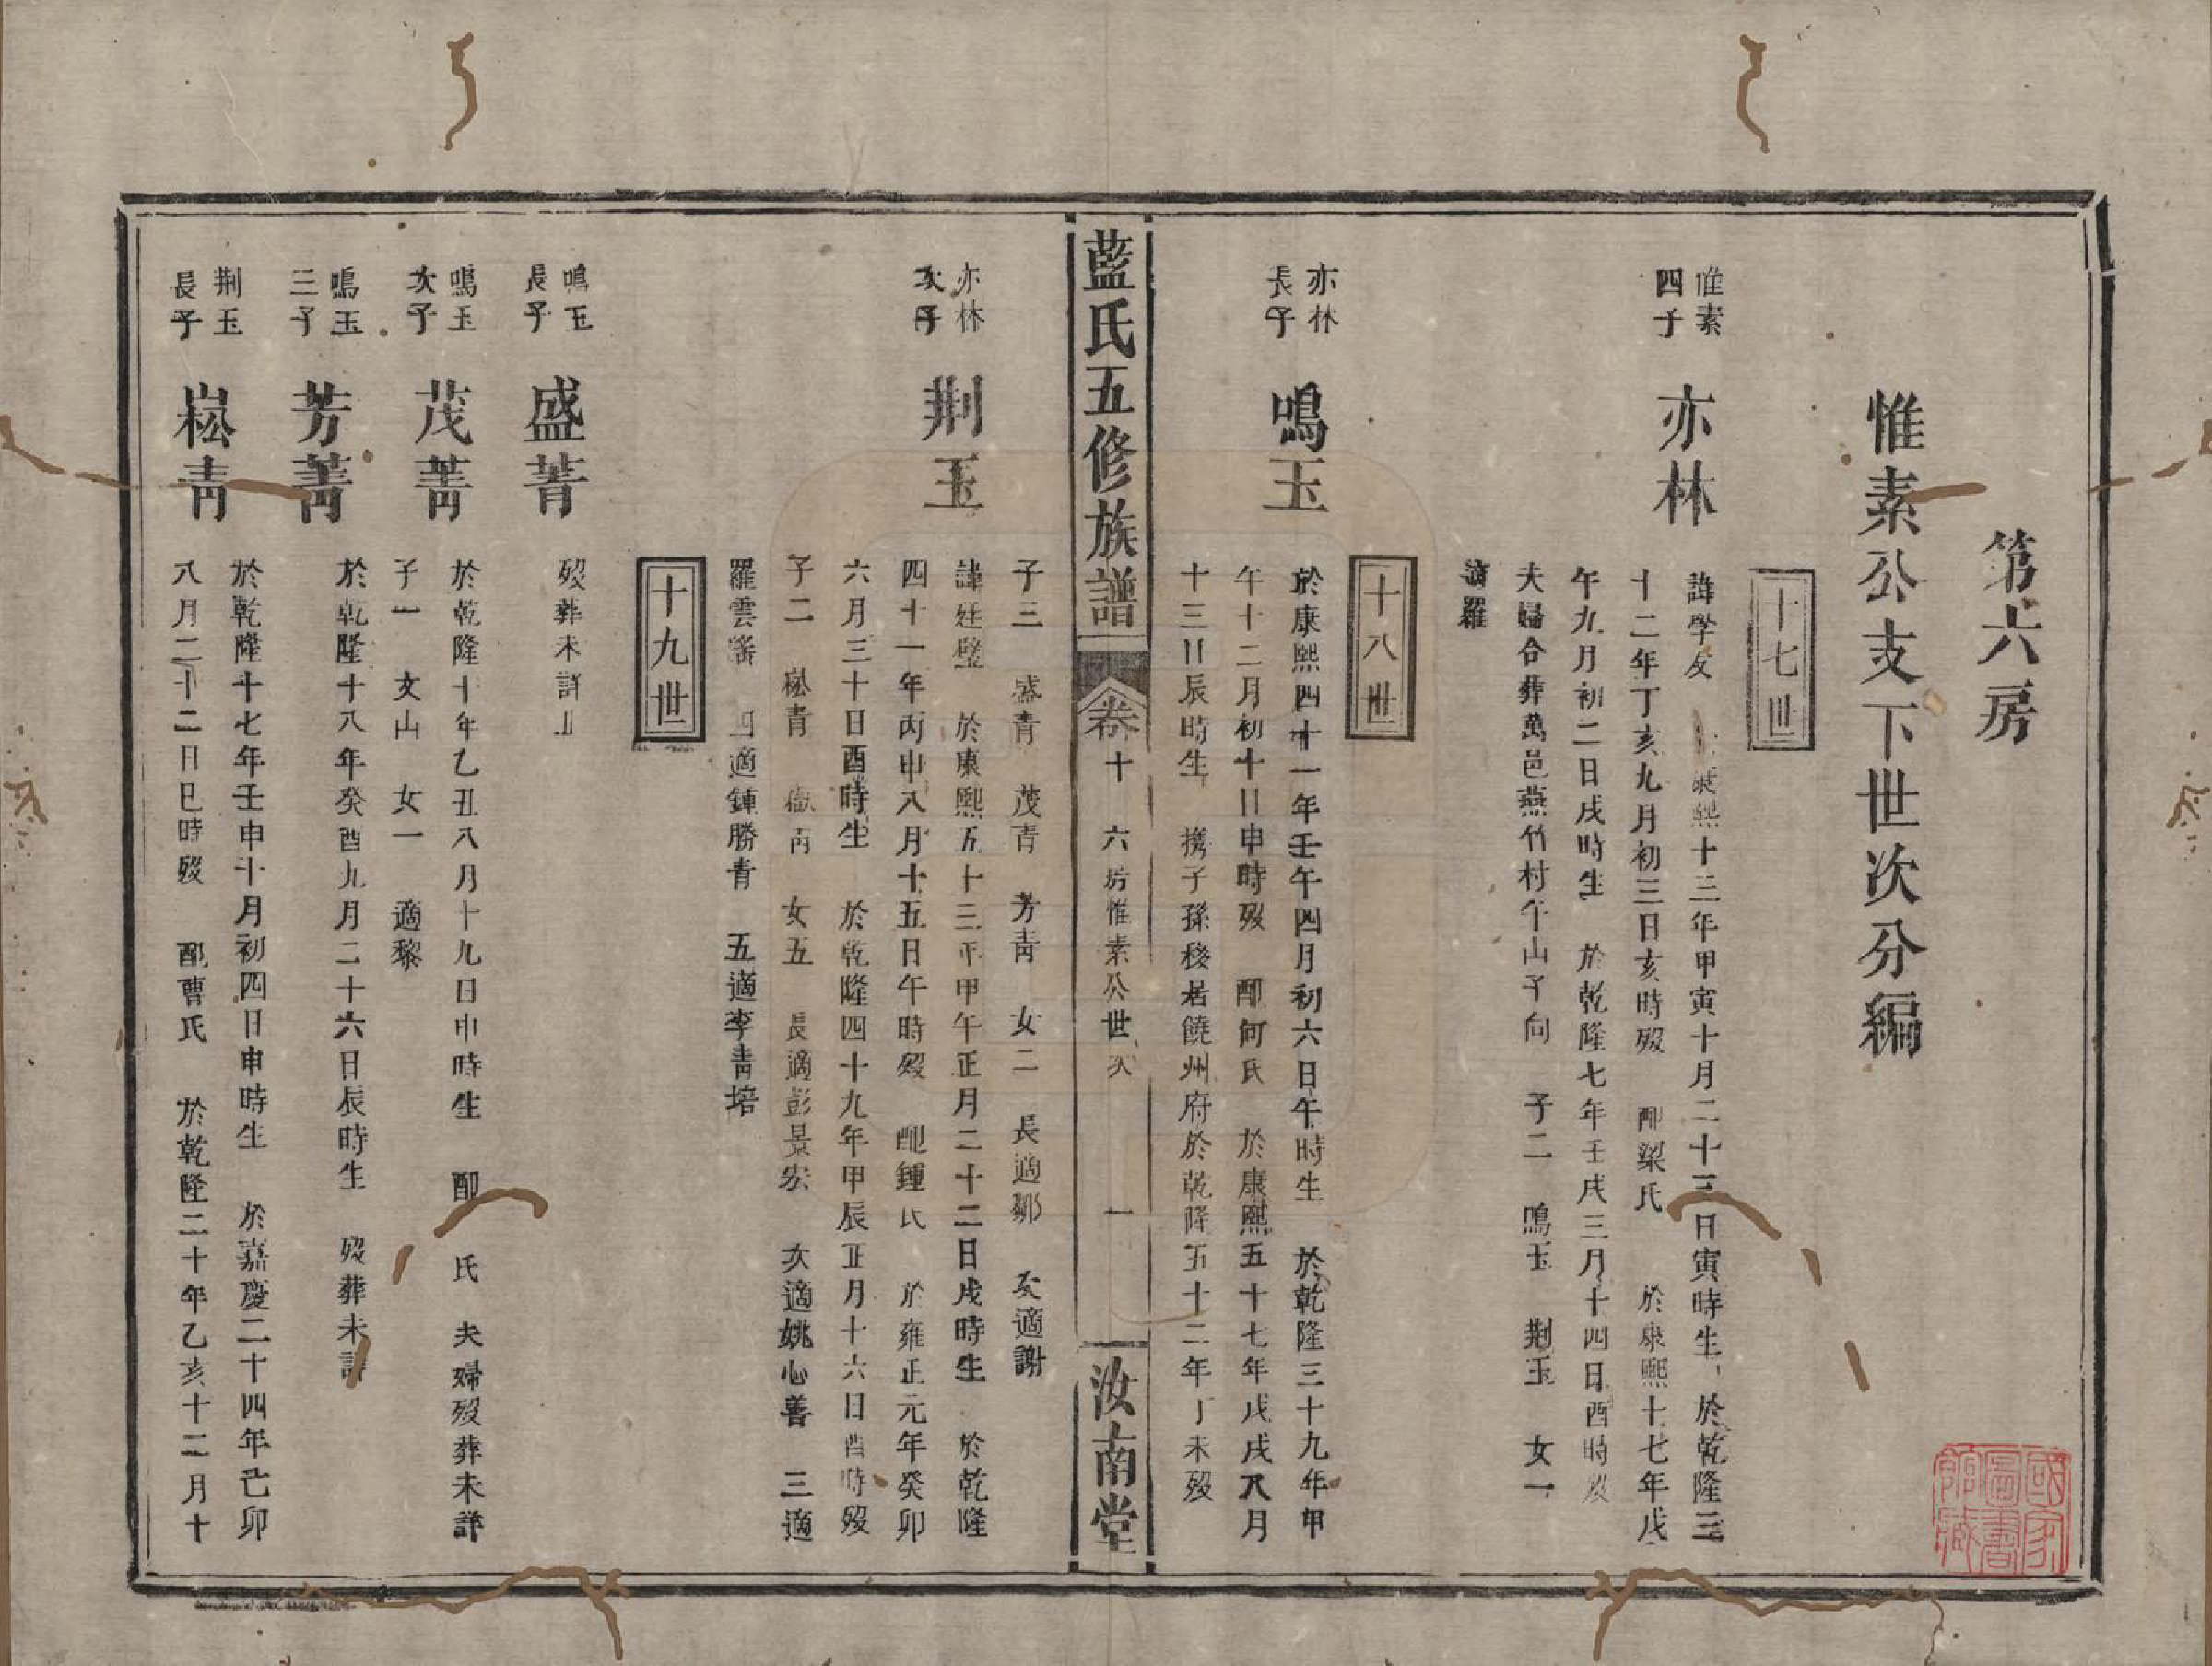 第六房
惟素公支下世次分編
十七世
惟素
四子
亦林
諱學友 康熙十三年甲寅十月二十三日寅時生 於乾隆三
十二年丁亥九月初三日亥時歿 配梁氏 於康熙十七年戊
午九月初二日戌時生 於乾隆七年壬戌三月十四日酉時歿
夫婦合葬萬邑燕竹村午山子向 子二 鳴玉 荆玉 女一
適羅
十八世
亦林
長子
鳴玉
於康熙四十一年壬午四月初六日午時生 於乾隆三十九年甲
午十二月初十日申時歿 配何氏 於康熙五十七年戊戌八月
十三日辰時生 携子孫移居饒州府於乾隆五十二年丁未歿
藍氏五修族譜
卷十 六房惟素公世次 一
汝南堂
子三 盛青 茂青 芳青 女二 長適鄒 次適謝
亦林
次子
荆玉
諱廷璧 於康熙五十三年甲午正月二十二日戌時生 於乾隆
四十一年丙申八月十五日午時歿 配鍾氏 於雍正元年癸卯
六月三十日酉時生 於乾隆四十九年甲辰正月十六日酉時歿
子二 崧青 青 女五 長適彭景宏 次適姚心善 三適
羅雲 四適鍾勝青 五適李青培
十九世
鳴玉
長子
盛菁
歿葬未詳止
鳴玉
次子
茂菁
於乾隆十年乙丑八月十九日申時生 配 氏 夫婦歿葬未詳
子一 文山 女一 適黎
鳴玉
三子
芳菁
於乾隆十八年癸酉九月二十六日辰時生 歿葬未詳
荆玉
長子
崧青
於乾隆十七年壬申十月初四日申時生 於嘉慶二十四年己卯
八月二十二日巳時歿 配曹氏 於乾隆二十年乙亥十二月十
國家圖書館藏